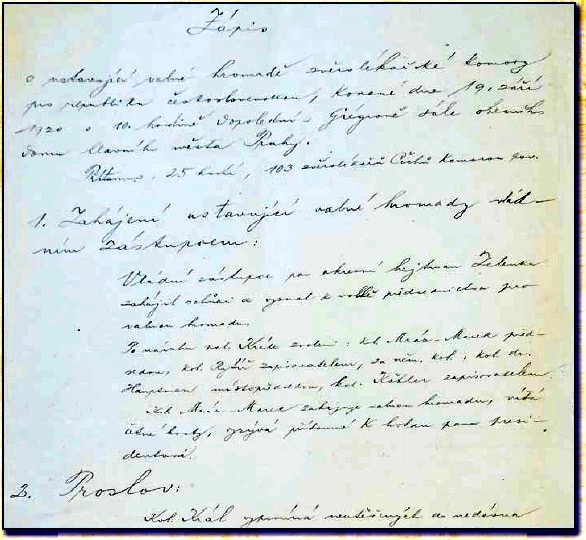 Zápis
o ustavující valné hromadě zvěrolékařské komory
pro republiku československou, konané dne 19. září
1920 o 10. hodině dopolední v Grégrově sále obecního
domu hlavního města Prahy.
25 hostí, 103 zvěrolékařů
1. Zahájení ustavující valné hromady vlád-
ním zástupcem:
Vládní zástupce pan okresní hejtman Zelenka
zahájil schůzi a vyzval k volbě předsednictva pro
valnou hromadu.
Po návrhu kol. Krále zvoleni: kol. Marek před-
sedou, kol. zapisovatelem, za něm. kol.: kol. dr.
Hauptman místopředsedou, kol. Köhler zapisovatelem.
Kol. Marek zahajuje valnou hromadu, vítá
četné hosty, vyzývá přítomné k holdu panu presi-
dentovi.
2. Proslov:
Kol. Král vzpomíná neutěšených do nedávna